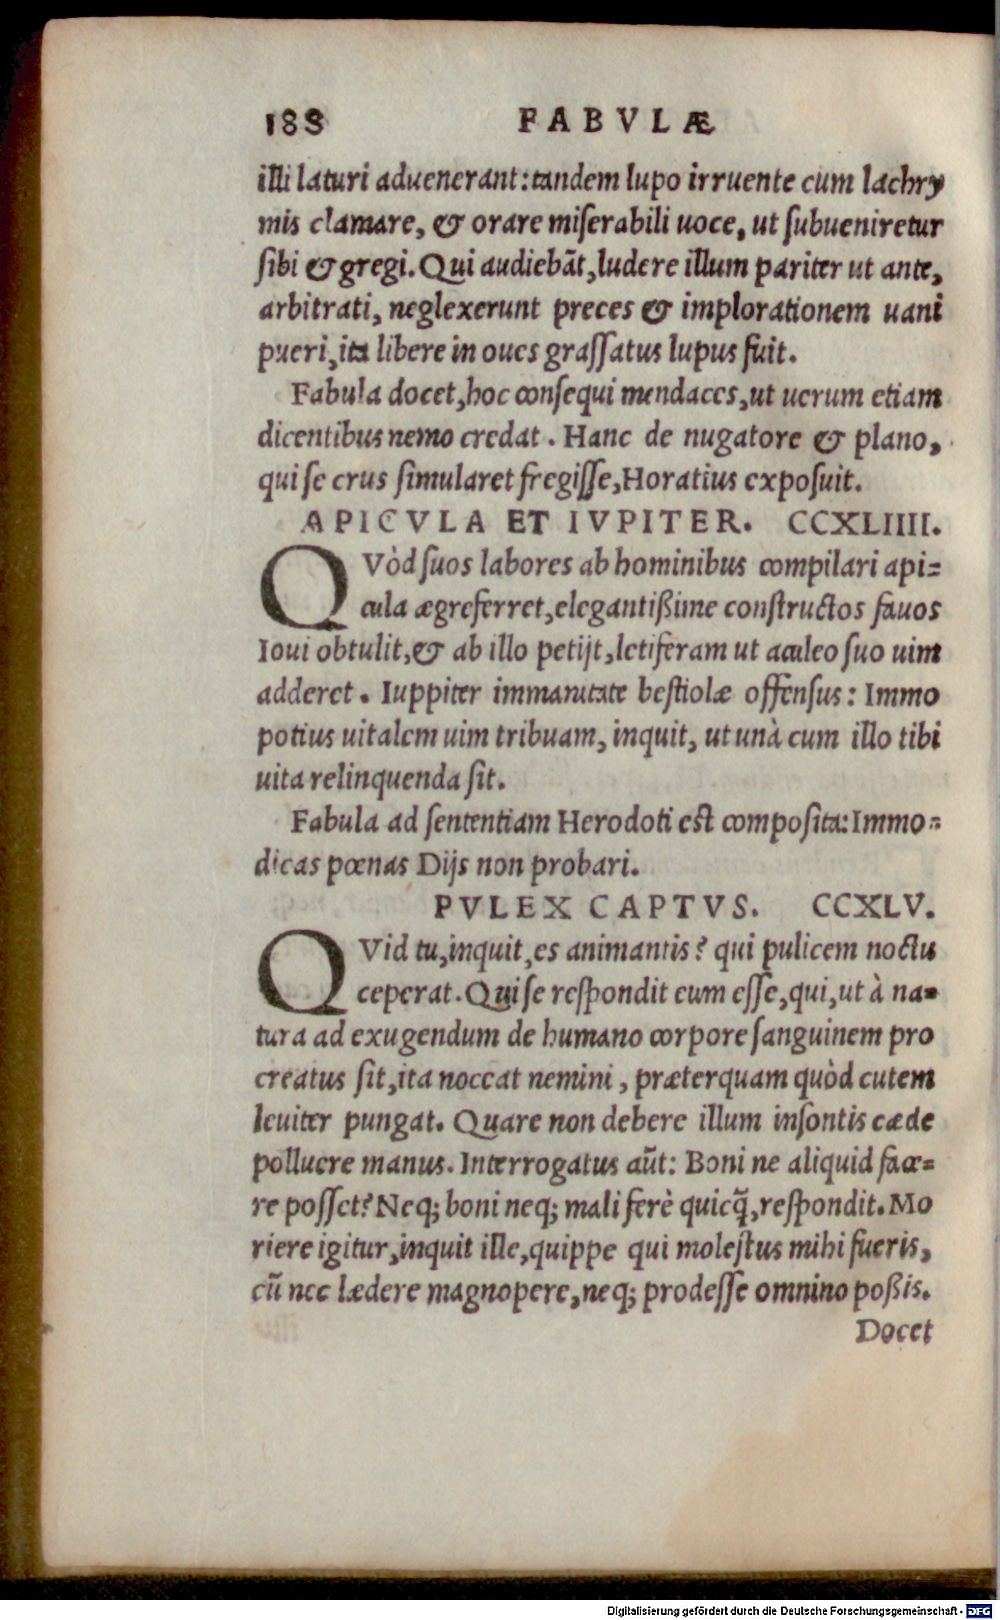 188 FABVLÆ
illi laturi aduenerant: tandem lupo irruente cum lachry
mis clamare, & orare miserabili uoce, ut subueniretur
sibi & gregi. Qui audiebāt, ludere illum pariter ut ante,
arbitrati, neglexerunt preces & implorationem uani
pueri, ita libere in oues grassatus lupus fuit.
Fabula docet, hoc consequi mendaces, ut uerum etiam
dicentibus nemo credat. Hanc de nugatore & plano,
qui se crus simularet fregisse, Horatius exposuit.
APICVLA ET IVPITER. CCXLIIII.
QVòd suos labores ab hominibus compilari api=
cula ægre ferret, elegantißime constructos fauos
Ioui obtulit, & ab illo petijt, letiferam ut aculeo suo uim
adderet. Iuppiter immanitate bestiolæ offensus: Immo
potius uitalem uim tribuam, inquit, ut unà cum illo tibi
uita relinquenda sit.
Fabula ad sententiam Herodoti est composita: Immo=
dicas pœnas Dijs non probari.
PVLEX CAPTVS. CCXLV.
QVid tu, inquit, es animantis? qui pulicem noctu
ceperat. Qui se respondit eum esse, qui, ut à na=
tura ad exugendum de humano corpore sanguinem pro
creatus sit, ita noceat nemini, præterquam quòd cutem
leuiter pungat. Quare non debere illum insontis cæde
polluere manus. Interrogatus aūt: Boni ne aliquid face=
re posset? Neq; boni neq; mali ferè quicq̃, respondit. Mo
riere igitur, inquit ille, quippe qui molestus mihi fueris,
cū nec lædere magnopere, neq; prodesse omnino poßis.
Docet
Digitalisierung gefördert durch die Deutsche Forschungsgemeinschaft - DFG